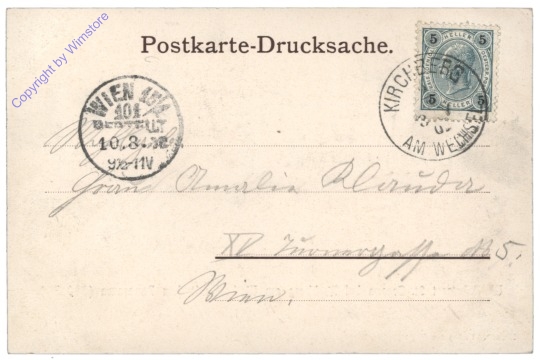 Copyright by Wimstore
Postkarte-Drucksache.
5 5
HELLER
5 5
KIRCHBERG
AM WECHSEL
WIEN
101
BESTELLT
10.8.
9½-11V
Frau Amalia Klauda
XV Turnergasse No 5.
Wien.